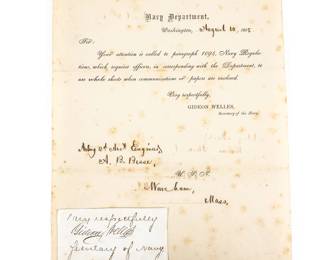 Navy Department,
Washington, August 10, 186
Sir:
Your attention is called to paragraph 1094, Navy Regula-
tions, which requires officers, in corresponding with the Department, to
use whole sheets when communications or papers are enclosed.
Very respectfully,
GIDEON WELLES,
Secretary of the Navy.
Actg 2d Asst Engineer
A. B.
U. S. N.
Wareham,
Mass,
Very respectfully
Gideon Welles
Secretary of Navy